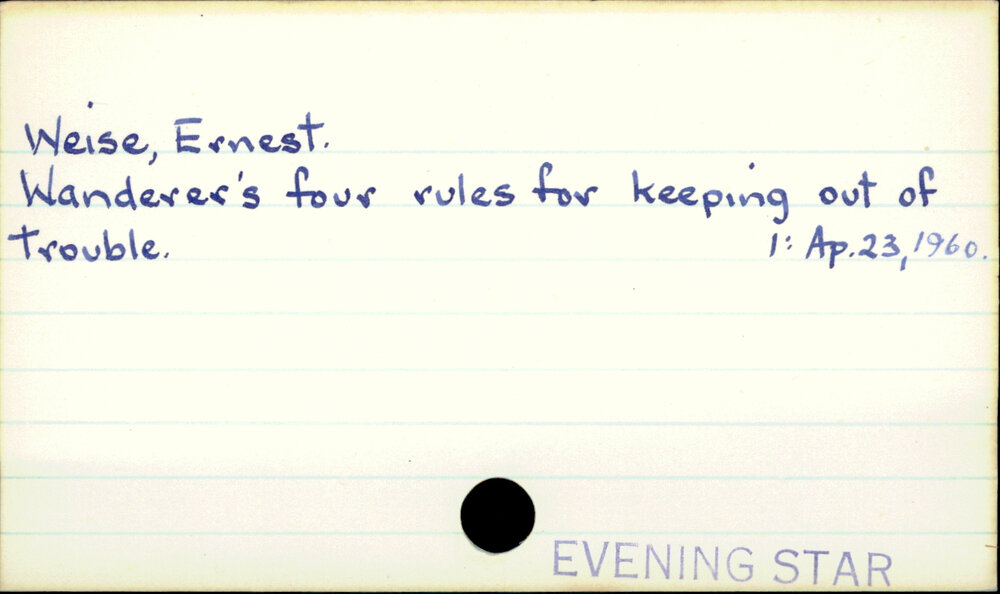 Weise, Ernest.
Wanderer's four rules for keeping out of
trouble. 1: Ap. 23, 1960.
EVENING STAR